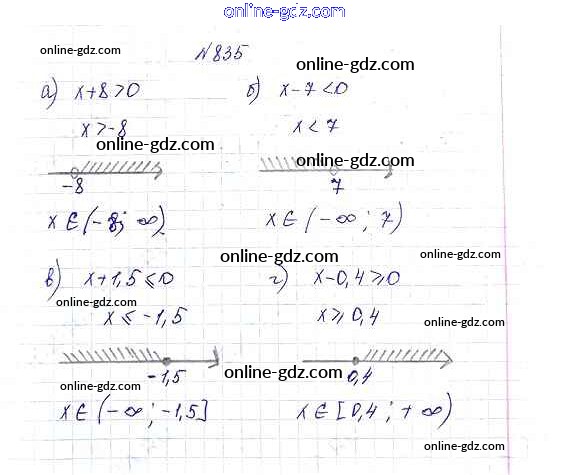 online-gdz.com
№835
online-gdz.com
online-gdz.com
а) x+8>0
б) x-7<0
online-gdz.com
x>-8
x<7
online-gdz.com
online-gdz.com
-8
7
x∈(-8; ∞)
x∈(-∞; 7)
online-gdz.com
online-gdz.com
online-gdz.com
в) x+1,5≤0
г) x-0,4≥0
online-gdz.com
x≤-1,5
x≥0,4
online-gdz.com
online-gdz.com
-1,5
0,4
online-gdz.com
online-gdz.com
x∈(-∞; -1,5]
x∈[0,4; +∞)
online-gdz.com
online-gdz.com